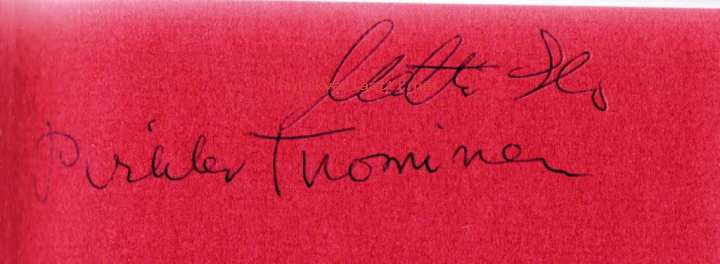 Matti Ilo
Pirkko Tuominen